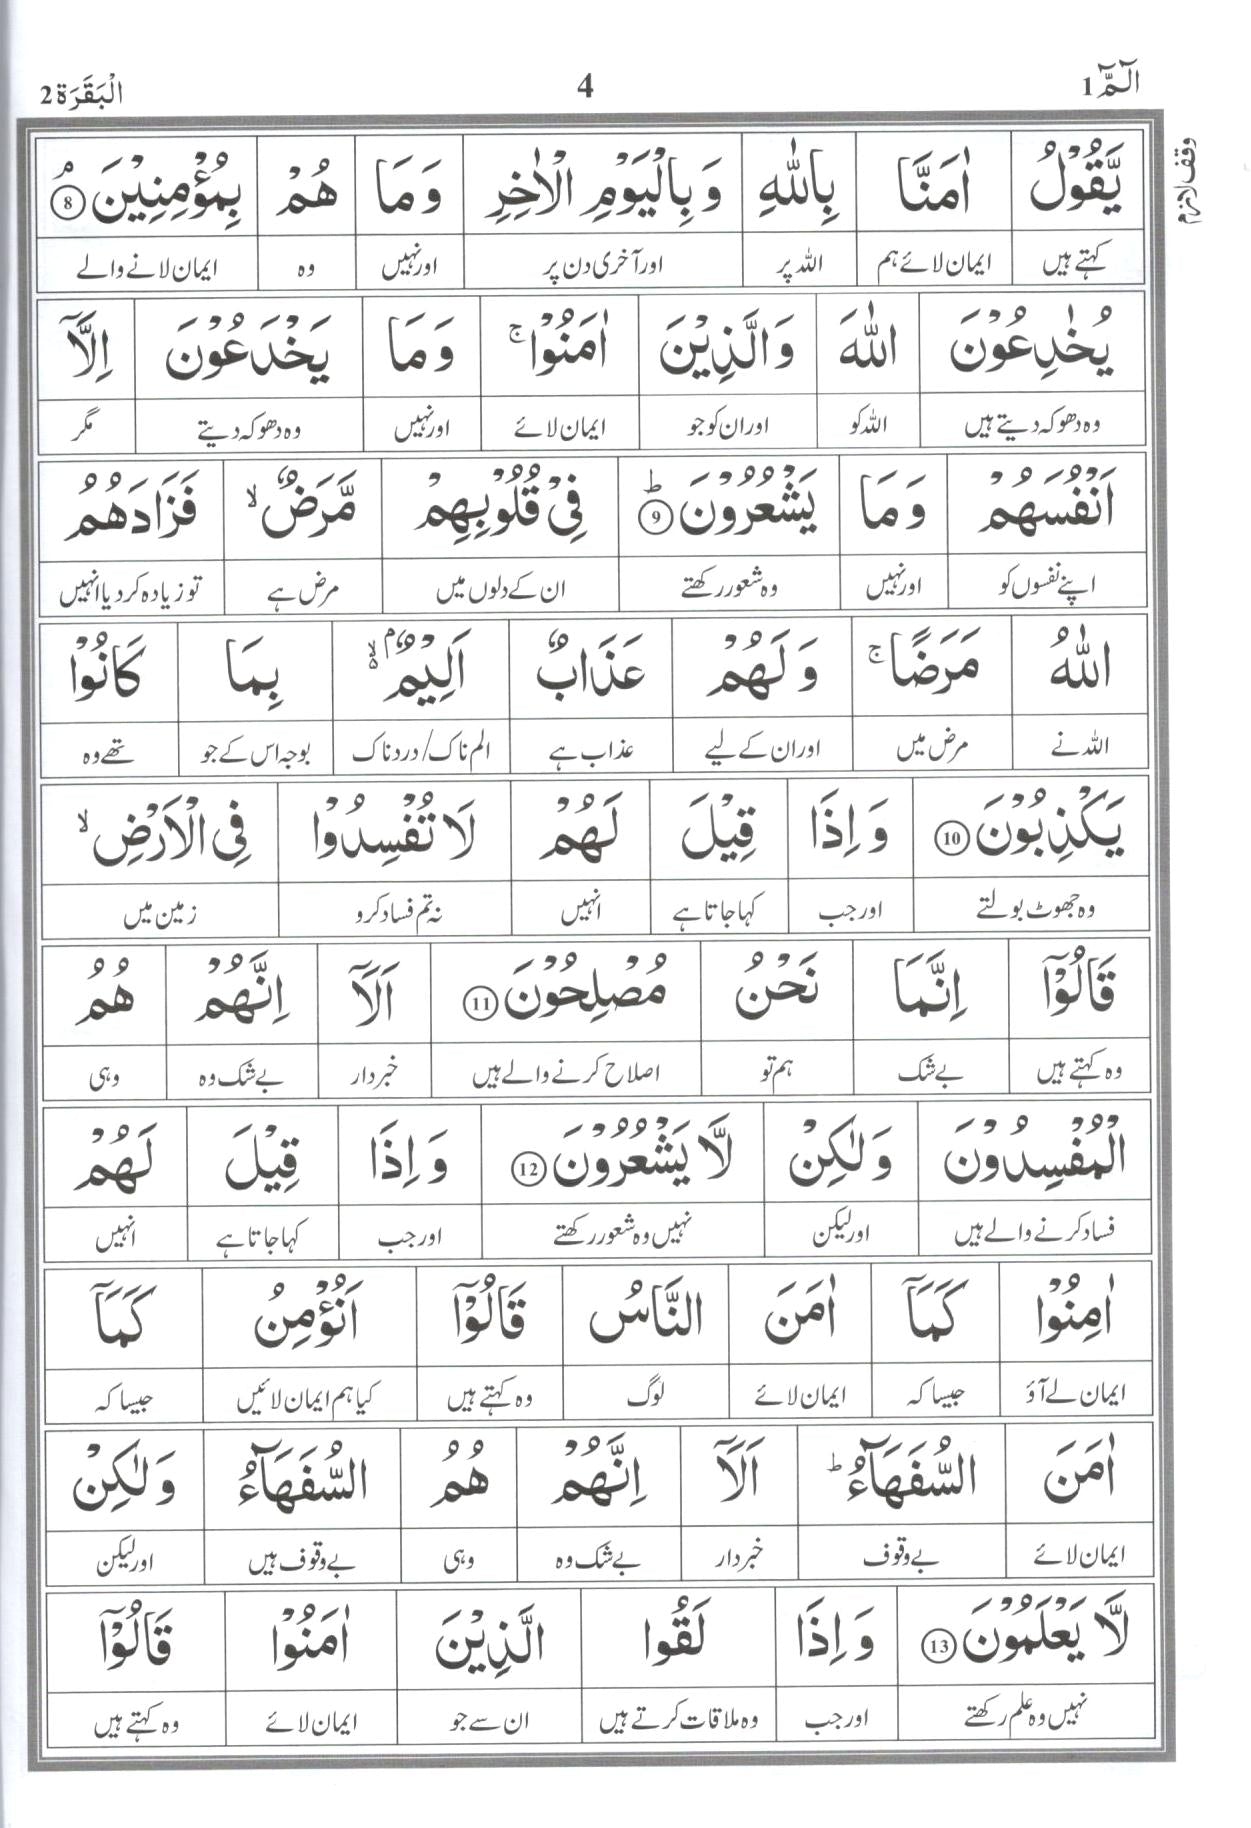 الٓمّٓ 1
4
اَلْبَقَرَة 2
وقف لازم
يَّقُوْلُ اٰمَنَّا بِاللّٰهِ وَبِالْيَوْمِ الْاٰخِرِ وَمَا هُمْ بِمُؤْمِنِيْنَ ۘ 8
کہتے ہیں ایمان لائے ہم اللہ پر اور آخری دن پر اور نہیں وہ ایمان لانے والے
يُخٰدِعُوْنَ اللّٰهَ وَالَّذِيْنَ اٰمَنُوْا ۚ وَمَا يَخْدَعُوْنَ اِلَّآ
وہ دھوکہ دیتے ہیں اللہ کو اور ان کو جو ایمان لائے اور نہیں وہ دھوکہ دیتے مگر
اَنْفُسَهُمْ وَمَا يَشْعُرُوْنَ ؕ 9 فِيْ قُلُوْبِهِمْ مَّرَضٌ ۙ فَزَادَهُمُ
اپنے نفسوں کو اور نہیں وہ شعور رکھتے ان کے دلوں میں مرض ہے تو زیادہ کر دیا انہیں
اللّٰهُ مَرَضًا ۚ وَلَهُمْ عَذَابٌ اَلِيْمٌۢ ۙ۬ بِمَا كَانُوْا
اللہ نے مرض میں اور ان کے لیے عذاب ہے الم ناک/درد ناک بوجہ اس کے جو تھے وہ
يَكْذِبُوْنَ 10 وَاِذَا قِيْلَ لَهُمْ لَا تُفْسِدُوْا فِي الْاَرْضِ ۙ
وہ جھوٹ بولتے اور جب کہا جاتا ہے انہیں نہ تم فساد کرو زمین میں
قَالُوْٓا اِنَّمَا نَحْنُ مُصْلِحُوْنَ 11 اَلَآ اِنَّهُمْ هُمُ
وہ کہتے ہیں بے شک ہم تو اصلاح کرنے والے ہیں خبردار بے شک وہ وہی
الْمُفْسِدُوْنَ وَلٰكِنْ لَّا يَشْعُرُوْنَ 12 وَاِذَا قِيْلَ لَهُمْ
فساد کرنے والے ہیں اور لیکن نہیں وہ شعور رکھتے اور جب کہا جاتا ہے انہیں
اٰمِنُوْا كَمَآ اٰمَنَ النَّاسُ قَالُوْٓا اَنُؤْمِنُ كَمَآ
ایمان لے آؤ جیسا کہ ایمان لائے لوگ وہ کہتے ہیں کیا ہم ایمان لائیں جیسا کہ
اٰمَنَ السُّفَهَآءُ ؕ اَلَآ اِنَّهُمْ هُمُ السُّفَهَآءُ وَلٰكِنْ
ایمان لائے بے وقوف خبردار بے شک وہ وہی بے وقوف ہیں اور لیکن
لَّا يَعْلَمُوْنَ 13 وَاِذَا لَقُوا الَّذِيْنَ اٰمَنُوْا قَالُوْٓا
نہیں وہ علم رکھتے اور جب وہ ملاقات کرتے ہیں ان سے جو ایمان لائے وہ کہتے ہیں